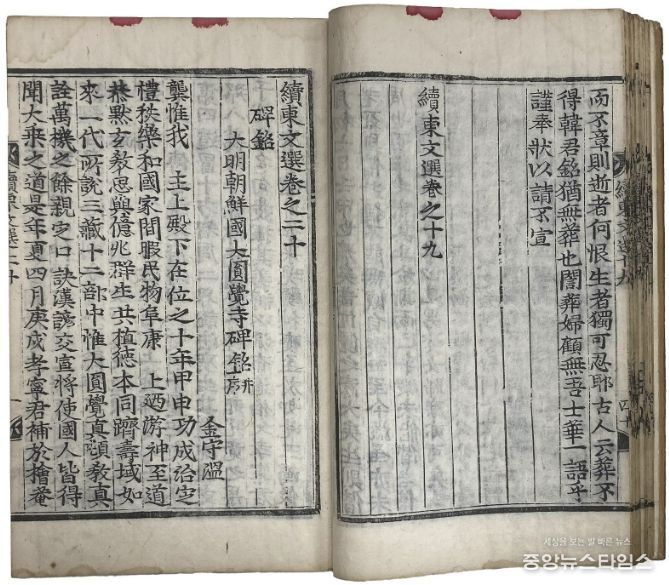 而不章則逝者何恨生者獨可忍耶古人云葬不
得韓君銘猶無葬也闇葬婦顧無吾士華一語乎
謹奉狀以請不宣
續東文選卷之十九
續東文選十九
四十
續東文選卷之二十
碑銘
大明朝鮮國大圓覺寺碑銘并序
金守溫
龔惟我 主上殿下在位之十年甲申功成治定
禮秩樂和國家閒暇民物阜康 上迺游神至道
恭默玄教思與億兆群生共植德本同躋壽域如
來一代所說三藏十二部中惟大圓覺眞頓教眞
詮萬機之餘親定口訣漢諺交宣將使國人皆得
聞大乘之道是年夏四月庚戌孝寧君補於檜菴
續東文選二十
一
세상을 보는 발 빠른 뉴스
중앙뉴스타임스